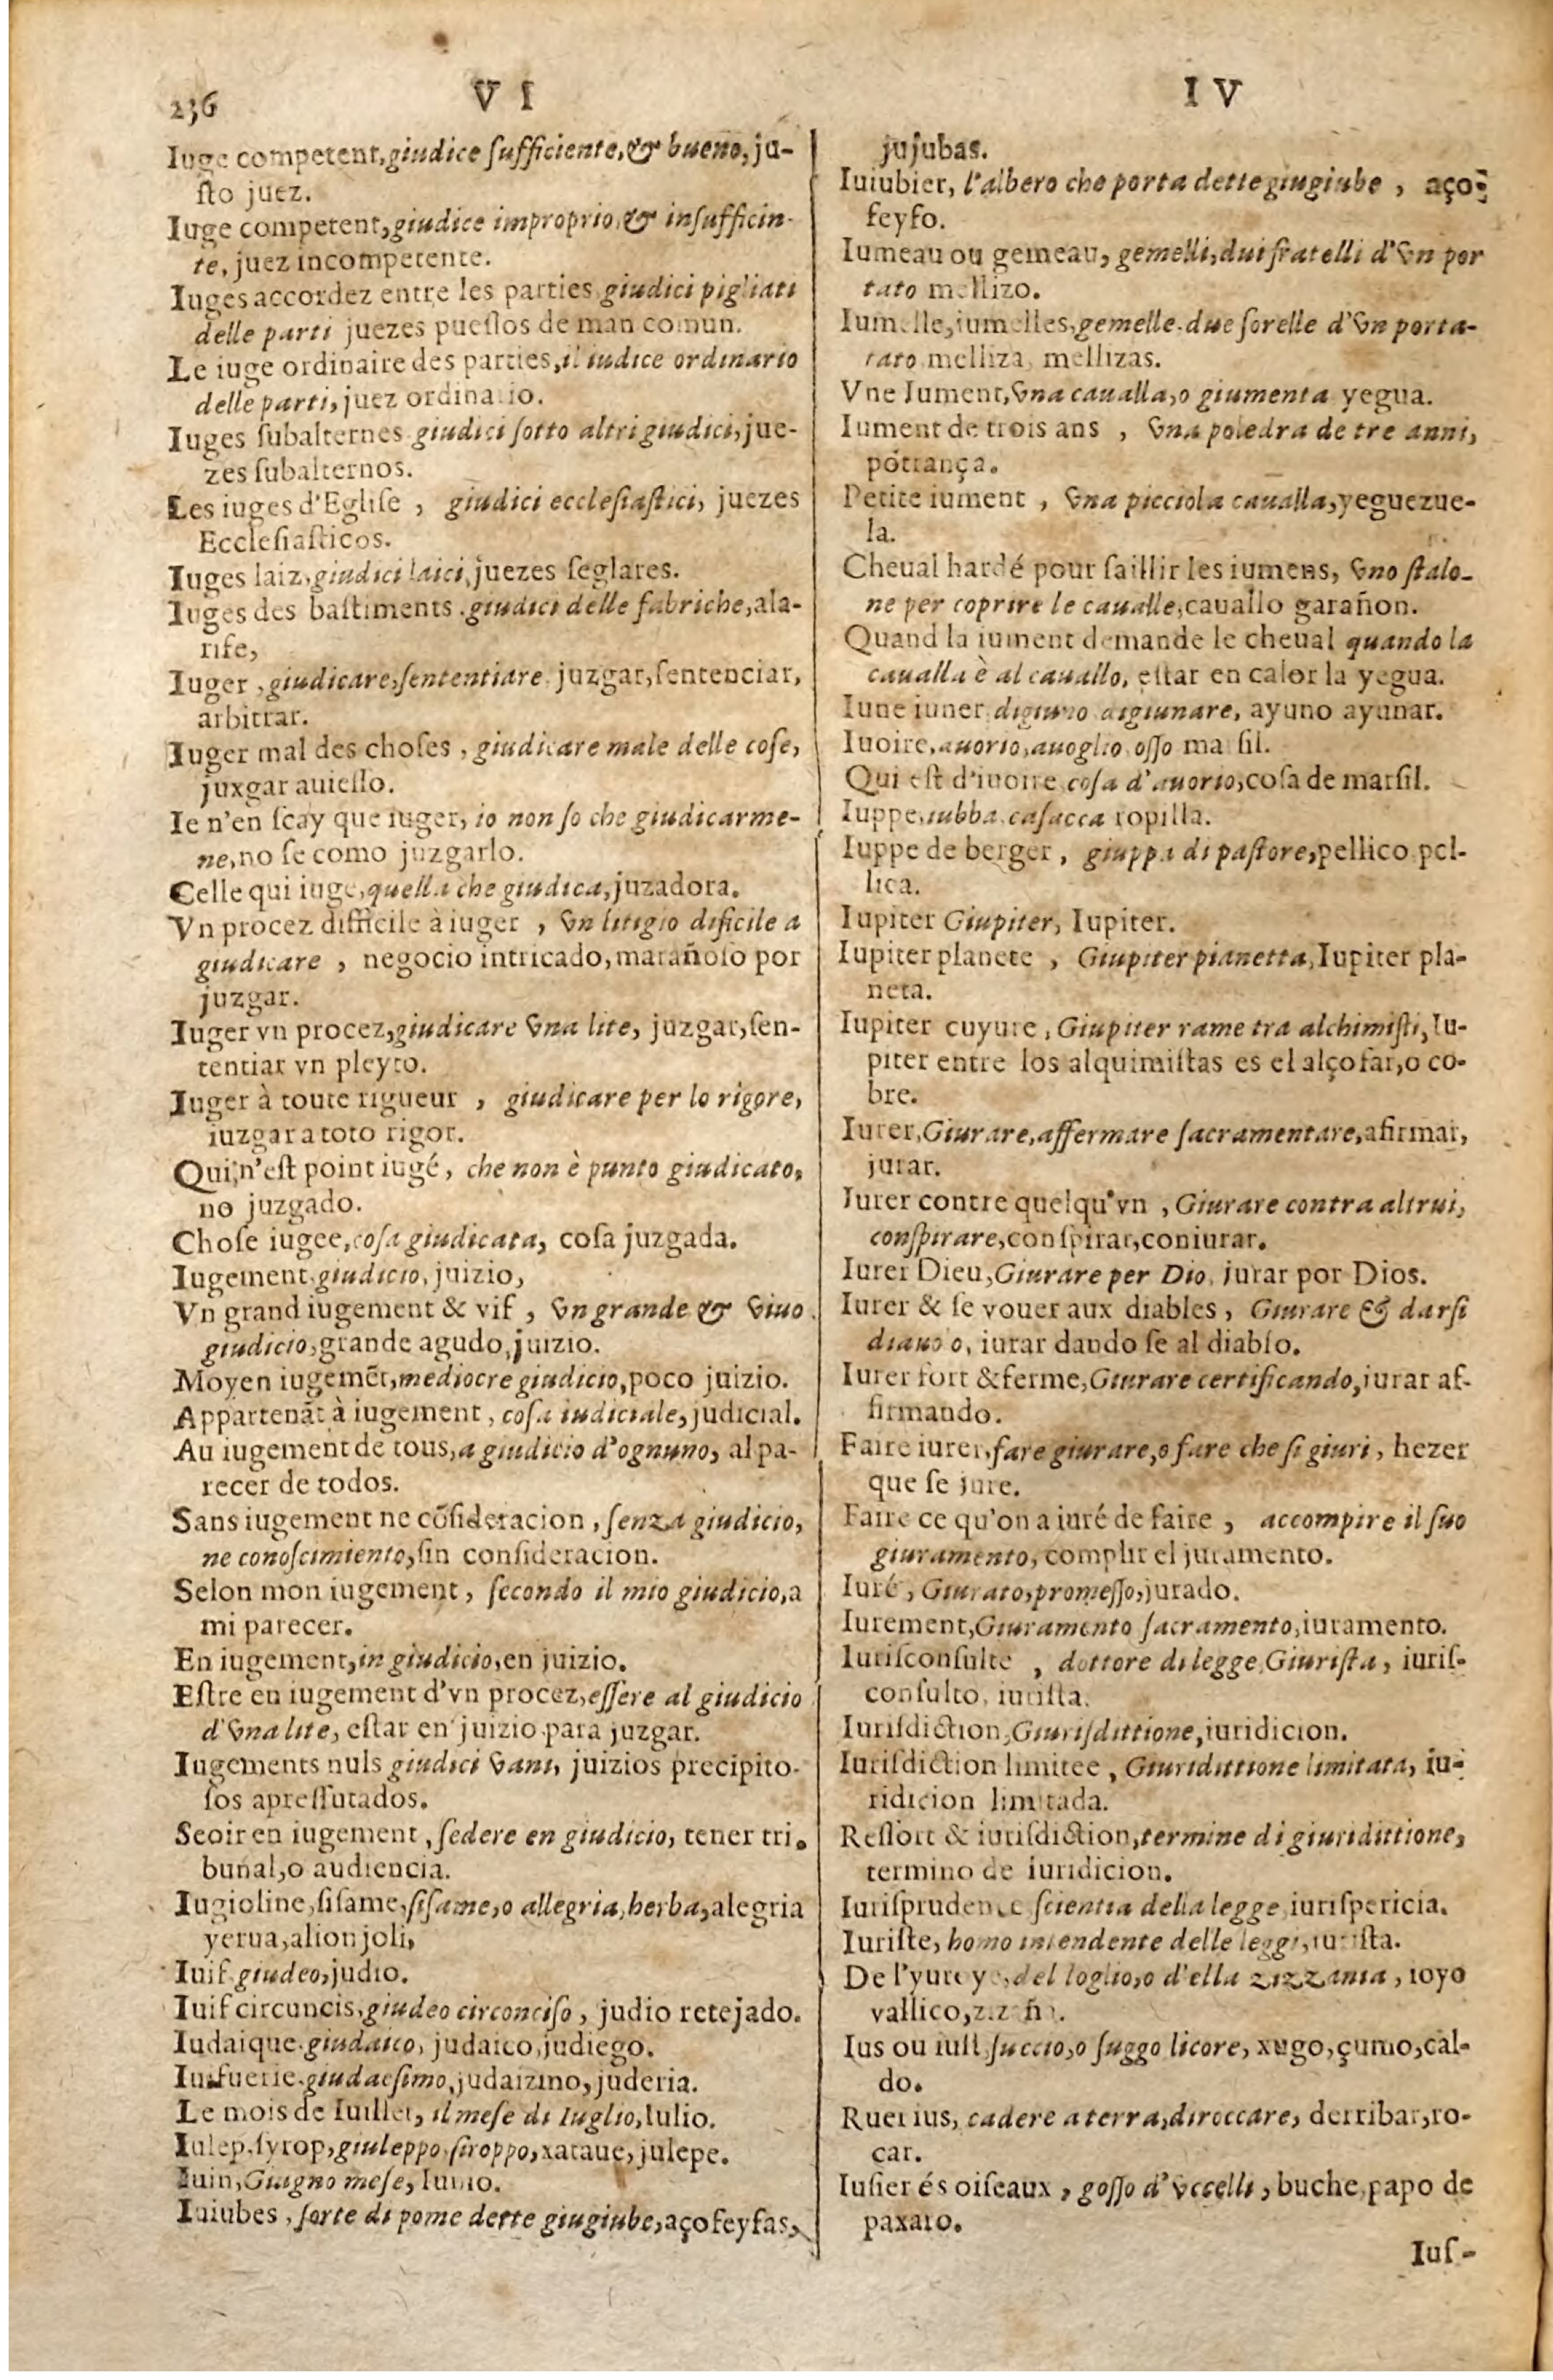 236
V I
I V
Iuge competent, giudice ſufficiente, & bueno, ju-
ſto juez.
Iuge competent, giudice improprio, & inſufficin-
te, juez incompetente.
Iuges accordez entre les parties giudici pigliati
delle parti juezes pueſlos de man comun.
Le iuge ordinaire des parties, il iudice ordinario
delle parti, juez ordinario.
Iuges ſubalternes giudici ſotto altri giudici, jue-
zes ſubalternos.
Les iuges d'Egliſe , giudici eccleſiaſtici, juezes
Eccleſiaſticos.
Iuges laiz, giudici laici, juezes ſeglares.
Iuges des baſtiments . giudici delle fabriche, ala-
rife,
Iuger , giudicare, ſententiare juzgar, ſentenciar,
arbitrar.
Iuger mal des choſes , giudicare male delle coſe,
juxgar auieſſo.
Ie n'en ſcay que iuger, io non ſo che giudicarme-
ne, no ſe como juzgarlo.
Celle qui iuge, quella che giudica, juzadora.
Vn procez difficile à iuger , vn litigio dificile a
giudicare , negocio intricado, marañoſo por
juzgar.
Iuger vn procez, giudicare vna lite, juzgar, ſen-
tentiar vn pleyto.
Iuger à toute rigueur , giudicare per lo rigore,
iuzgar a toto rigor.
Qui, n'eſt point iugé, che non è punto giudicato,
no juzgado.
Choſe iugee, coſa giudicata, coſa juzgada.
Iugement. giudicio, juizio,
Vn grand iugement & vif , vn grande & viuo
giudicio, grande agudo, juizio.
Moyen iugemẽt, mediocre giudicio, poco juizio.
Appartenãt à iugement, coſa iudiciale, judicial.
Au iugement de tous, a giudicio d'ognuno, al pa-
recer de todos.
Sans iugement ne cõſideracion, ſenza giudicio,
ne conoſcimiento, ſin conſideracion.
Selon mon iugement, ſecondo il mio giudicio, a
mi parecer.
En iugement, in giudicio, en juizio.
Eſtre en iugement d'vn procez, eſſere al giudicio
d'vna lite, eſtar en juizio para juzgar.
Iugements nuls giudici vani, juizios precipito-
ſos apreſſutados.
Seoir en iugement, ſedere en giudicio, tener tri-
bunal, o audiencia.
Iugioline, ſiſame, ſiſame, o allegria, herba, alegria
yerua, alionjoli,
Iuif. giudeo, judio.
Iuif circuncis, giudeo circonciſo, judio retejado.
Iudaique. giudaico, judaico, judiego.
Iuifuerie. giudaeſimo, judaizmo, juderia.
Le mois de Iuillet, il meſe di Iuglio, Iulio.
Iulep, ſyrop, giuleppo, ſiroppo, xaraue, julepe.
Iuin, Giugno meſe, Iunio.
Iuiubes, ſorte di pome dette giugiube, açofeyfas,
jujubas.
Iuiubier, l'albero che porta dette giugiube , aço-
feyfo.
Iumeau ou gemeau, gemelli, dui fratelli d'vn por
tato mellizo.
Iumelle, iumelles, gemelle. due ſorelle d'vn porta-
rato melliza, mellizas.
Vne Iument, vna caualla, o giumenta yegua.
Iument de trois ans , vna poledra de tre anni,
potrança.
Petite iument , vna picciola caualla, yeguezue-
la.
Cheual hardé pour ſaillir les iumens, vno ſtalo-
ne per coprire le caualle, cauallo garañon.
Quand la iument demande le cheual quando la
caualla è al cauallo, eſtar en calor la yegua.
Iune iuner digiuno digiunare, ayuno ayunar.
Iuoire, auorio, auoglio oſſo marſil.
Qui eſt d'iuoire coſa d'auorio, coſa de marſil.
Iuppe, iubba. caſacca ropilla.
Iuppe de berger, giuppa di paſtore, pellico pel-
lica.
Iupiter Giupiter, Iupiter.
Iupiter planete , Giupiter pianetta, Iupiter pla-
neta.
Iupiter cuyure, Giupiter rame tra alchimiſti, Iu-
piter entre los alquimiſtas es el alçofar, o co-
bre.
Iurer, Giurare, affermare ſacramentare, afirmar,
jurar.
Iurer contre quelqu'vn , Giurare contra altrui,
conſpirare, conſpirar, coniurar.
Iurer Dieu, Giurare per Dio, jurar por Dios.
Iurer & ſe vouer aux diables, Giurare & darſi
diauolo, iurar dando ſe al diablo.
Iurer fort & ferme, Giurare certificando, iurar af-
firmando.
Faire iurer, fare giurare, o fare che ſi giuri, hezer
que ſe jure.
Faire ce qu'on a iuré de faire , accompire il ſuo
giuramento, complir el juramento.
Iuré, Giurato, promeſſo, jurado.
Iurement, Giuramento ſacramento, iuramento.
Iuriſconſulte , dottore di legge, Giuriſta, iuriſ-
conſulto, iuriſta.
Iuriſdiction, Giuriſdittione, iuridicion.
Iuriſdiction limitee, Giuridittione limitata, iu-
ridicion limitada.
Reſſort & iuriſdiction, termine di giuridittione,
termino de iuridicion.
Iuriſprudence ſcientia della legge iuriſpericia.
Iuriſte, homo intendente delle leggi, iuriſta.
De l'yuroye, del loglio, o d'ella zizzania, ioyo
vallico,
Ius ou iuſt, ſuccio, o ſuggo licore, xugo, çumo, cal-
do.
Ruer ius, cadere a terra, diroccare, derribar, ro-
car.
Iuſier és oiſeaux, goſſo d'vccelli, buche, papo de
paxaro.
Iuſ-